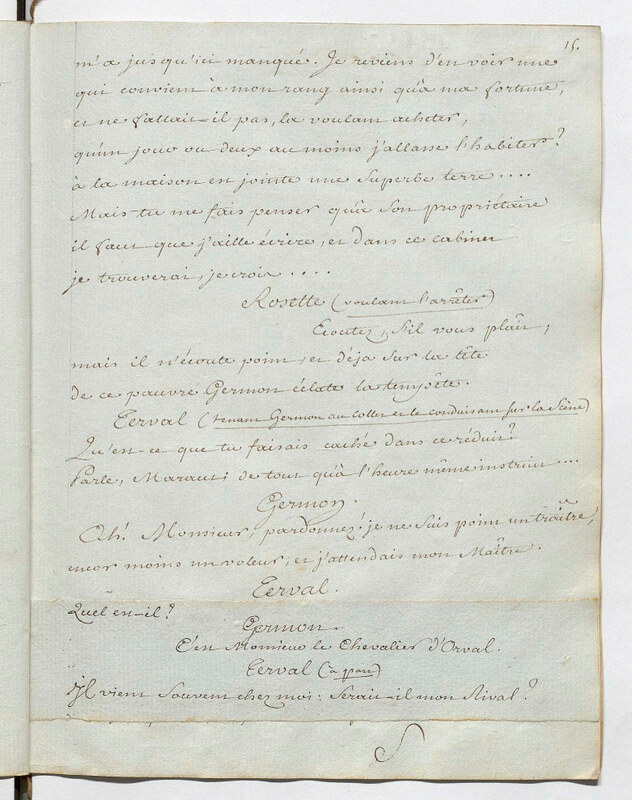 15.
m'a jusqu'ici manqué. Je reviens d'en voir une
qui convient à mon rang ainsi qu'à ma fortune,
et ne fallait-il pas, la voulant acheter,
qu'un jour ou deux au moins j'allasse l'habiter?
à la maison est jointe une superbe terre....
Mais tu me fais penser qu'à son propriétaire
il faut que j'aille écrire, et dans ce cabinet
je trouverai, je crois....
Rosette (voulant l'arrêter)
Ecoutez, s'il vous plaît,
mais il n'écoute point, et déja sur la tête
de ce pauvre Germon éclate la tempête.
Terval (tenant Germon au collet et le conduisant sur la Scène)
Qu'est-ce que tu faisais caché dans ce réduit?
Parle, Maraut! de tout qu'à l'heure même instruit...
Germon.
Ah! Monsieur, pardonnez! je ne suis point un traître,
encor moins un voleur, et j'attendais mon Maître.
Terval.
Quel est-il?
Germon.
C'est Monsieur le Chevalier d'Orval.
Terval (à part)
Il vient souvent chez moi: Serait-il mon Rival?